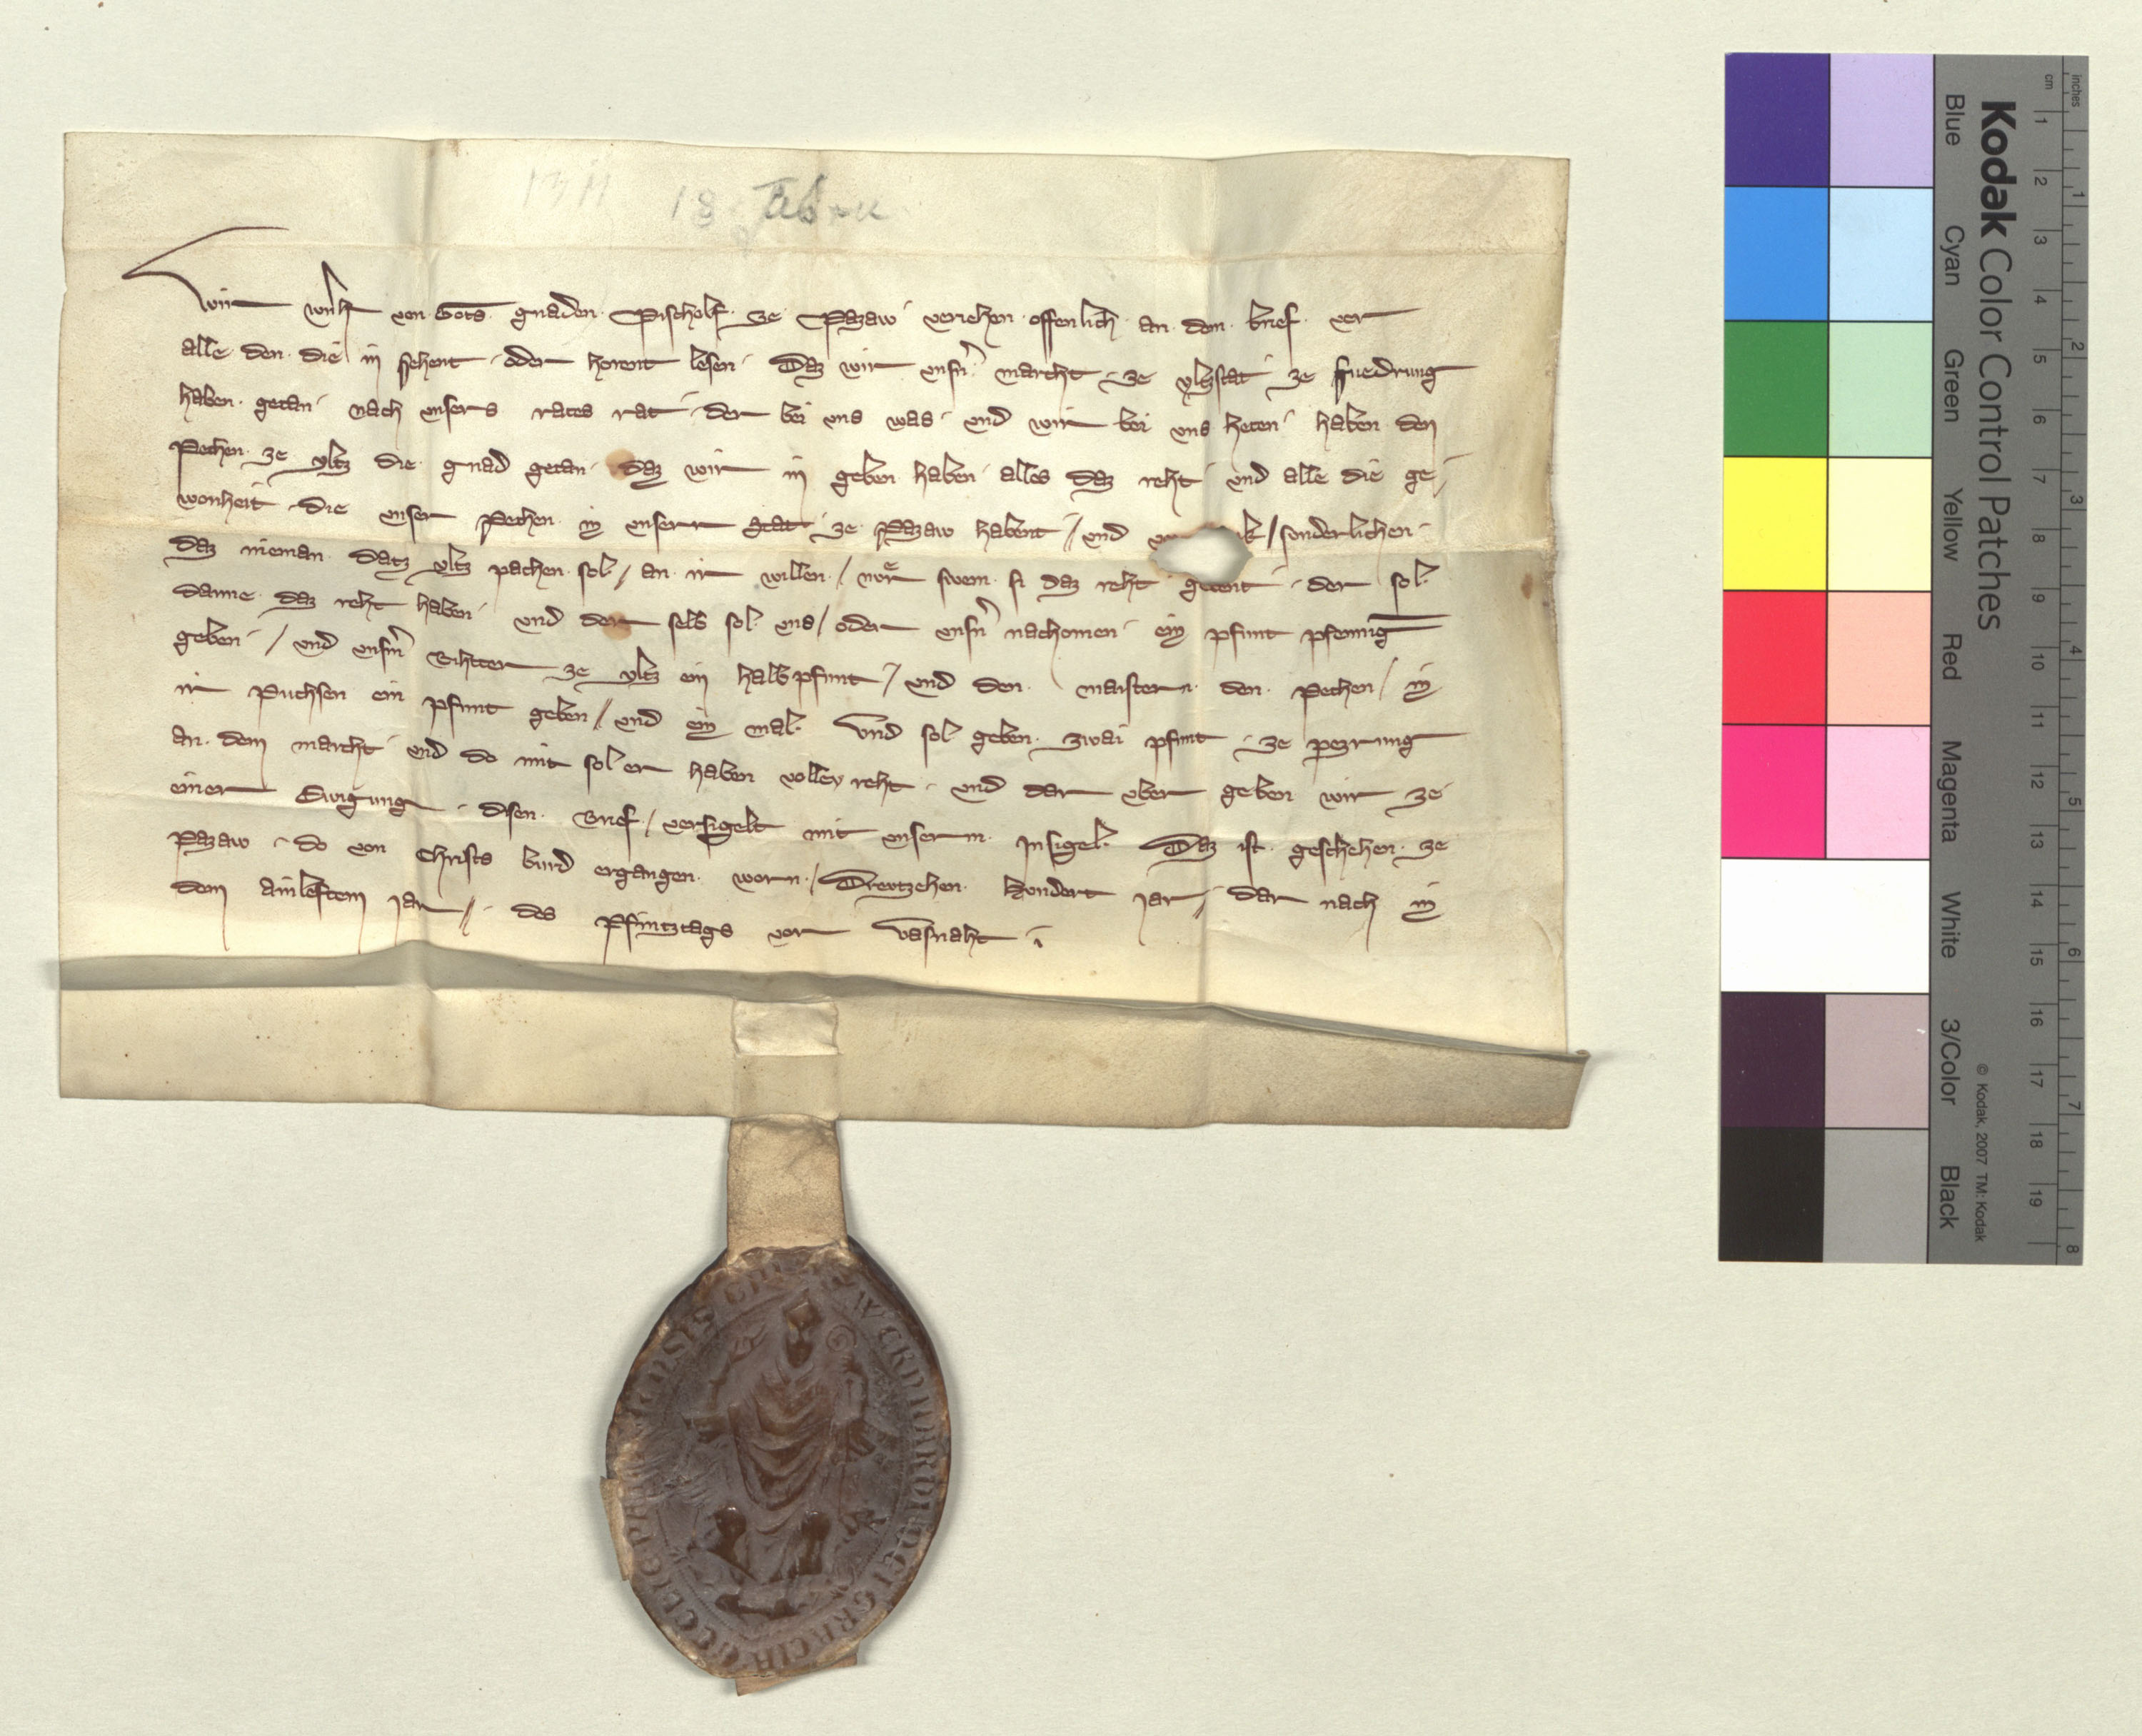 1311 18 Febru
Wir wernh von Gots gnaden Pischolf ze Pazaw veriehen offenlich an dem brief vor
alle den die in sehent oder horent lesen Daz wir unsˢm marcht ze yltzstat ze fuedrung
haben getan nach unsers rates rat der bei uns was und wir bei uns heten haben den
Pechen ze yltz die gnad getan daz wir in geben haben alles daz reht und alle die ge
wonheit die unser Pechen in unserr stat ze Pazaw habent / und / sonderlichen
daz nieman datz yltz pachen sol / an ir willen / swem si daz reht gebent der sol
danne daz reht haben und der selb sol uns / oder unsˢn nachomen ein pfunt pfennig
geben / und unsˢm Rihtter ze yltz ein halb pfunt / und den maistern den Pechen / in
ir Puchsen ein pfunt geben / und ein mal Und sol geben zwai pfunt ze pezrung
an dem marcht und do mit sol er haben volles reht und dar uber geben wir ze
einer Ewigung disen Brief / versigelt mit unserm Insigel Daz ist geschehen ze
Pazaw do von Christs burd ergangen worn / Dreutzehen hundert iar / dar nach in
dem ainleftem iar / des Pfintztags vor vasnaht
WERNHARDI DEI GRACIA ECCLESIE PATAVIENSIS EPI
Kodak Color Control Patches
Blue Cyan Green Yellow Red Magenta White 3/Color Black
© Kodak, 2007 TM: Kodak
cm 1 2 3 4 5 6 7 8 9 10 11 12 13 14 15 16 17 18 19
inches 1 2 3 4 5 6 7 8